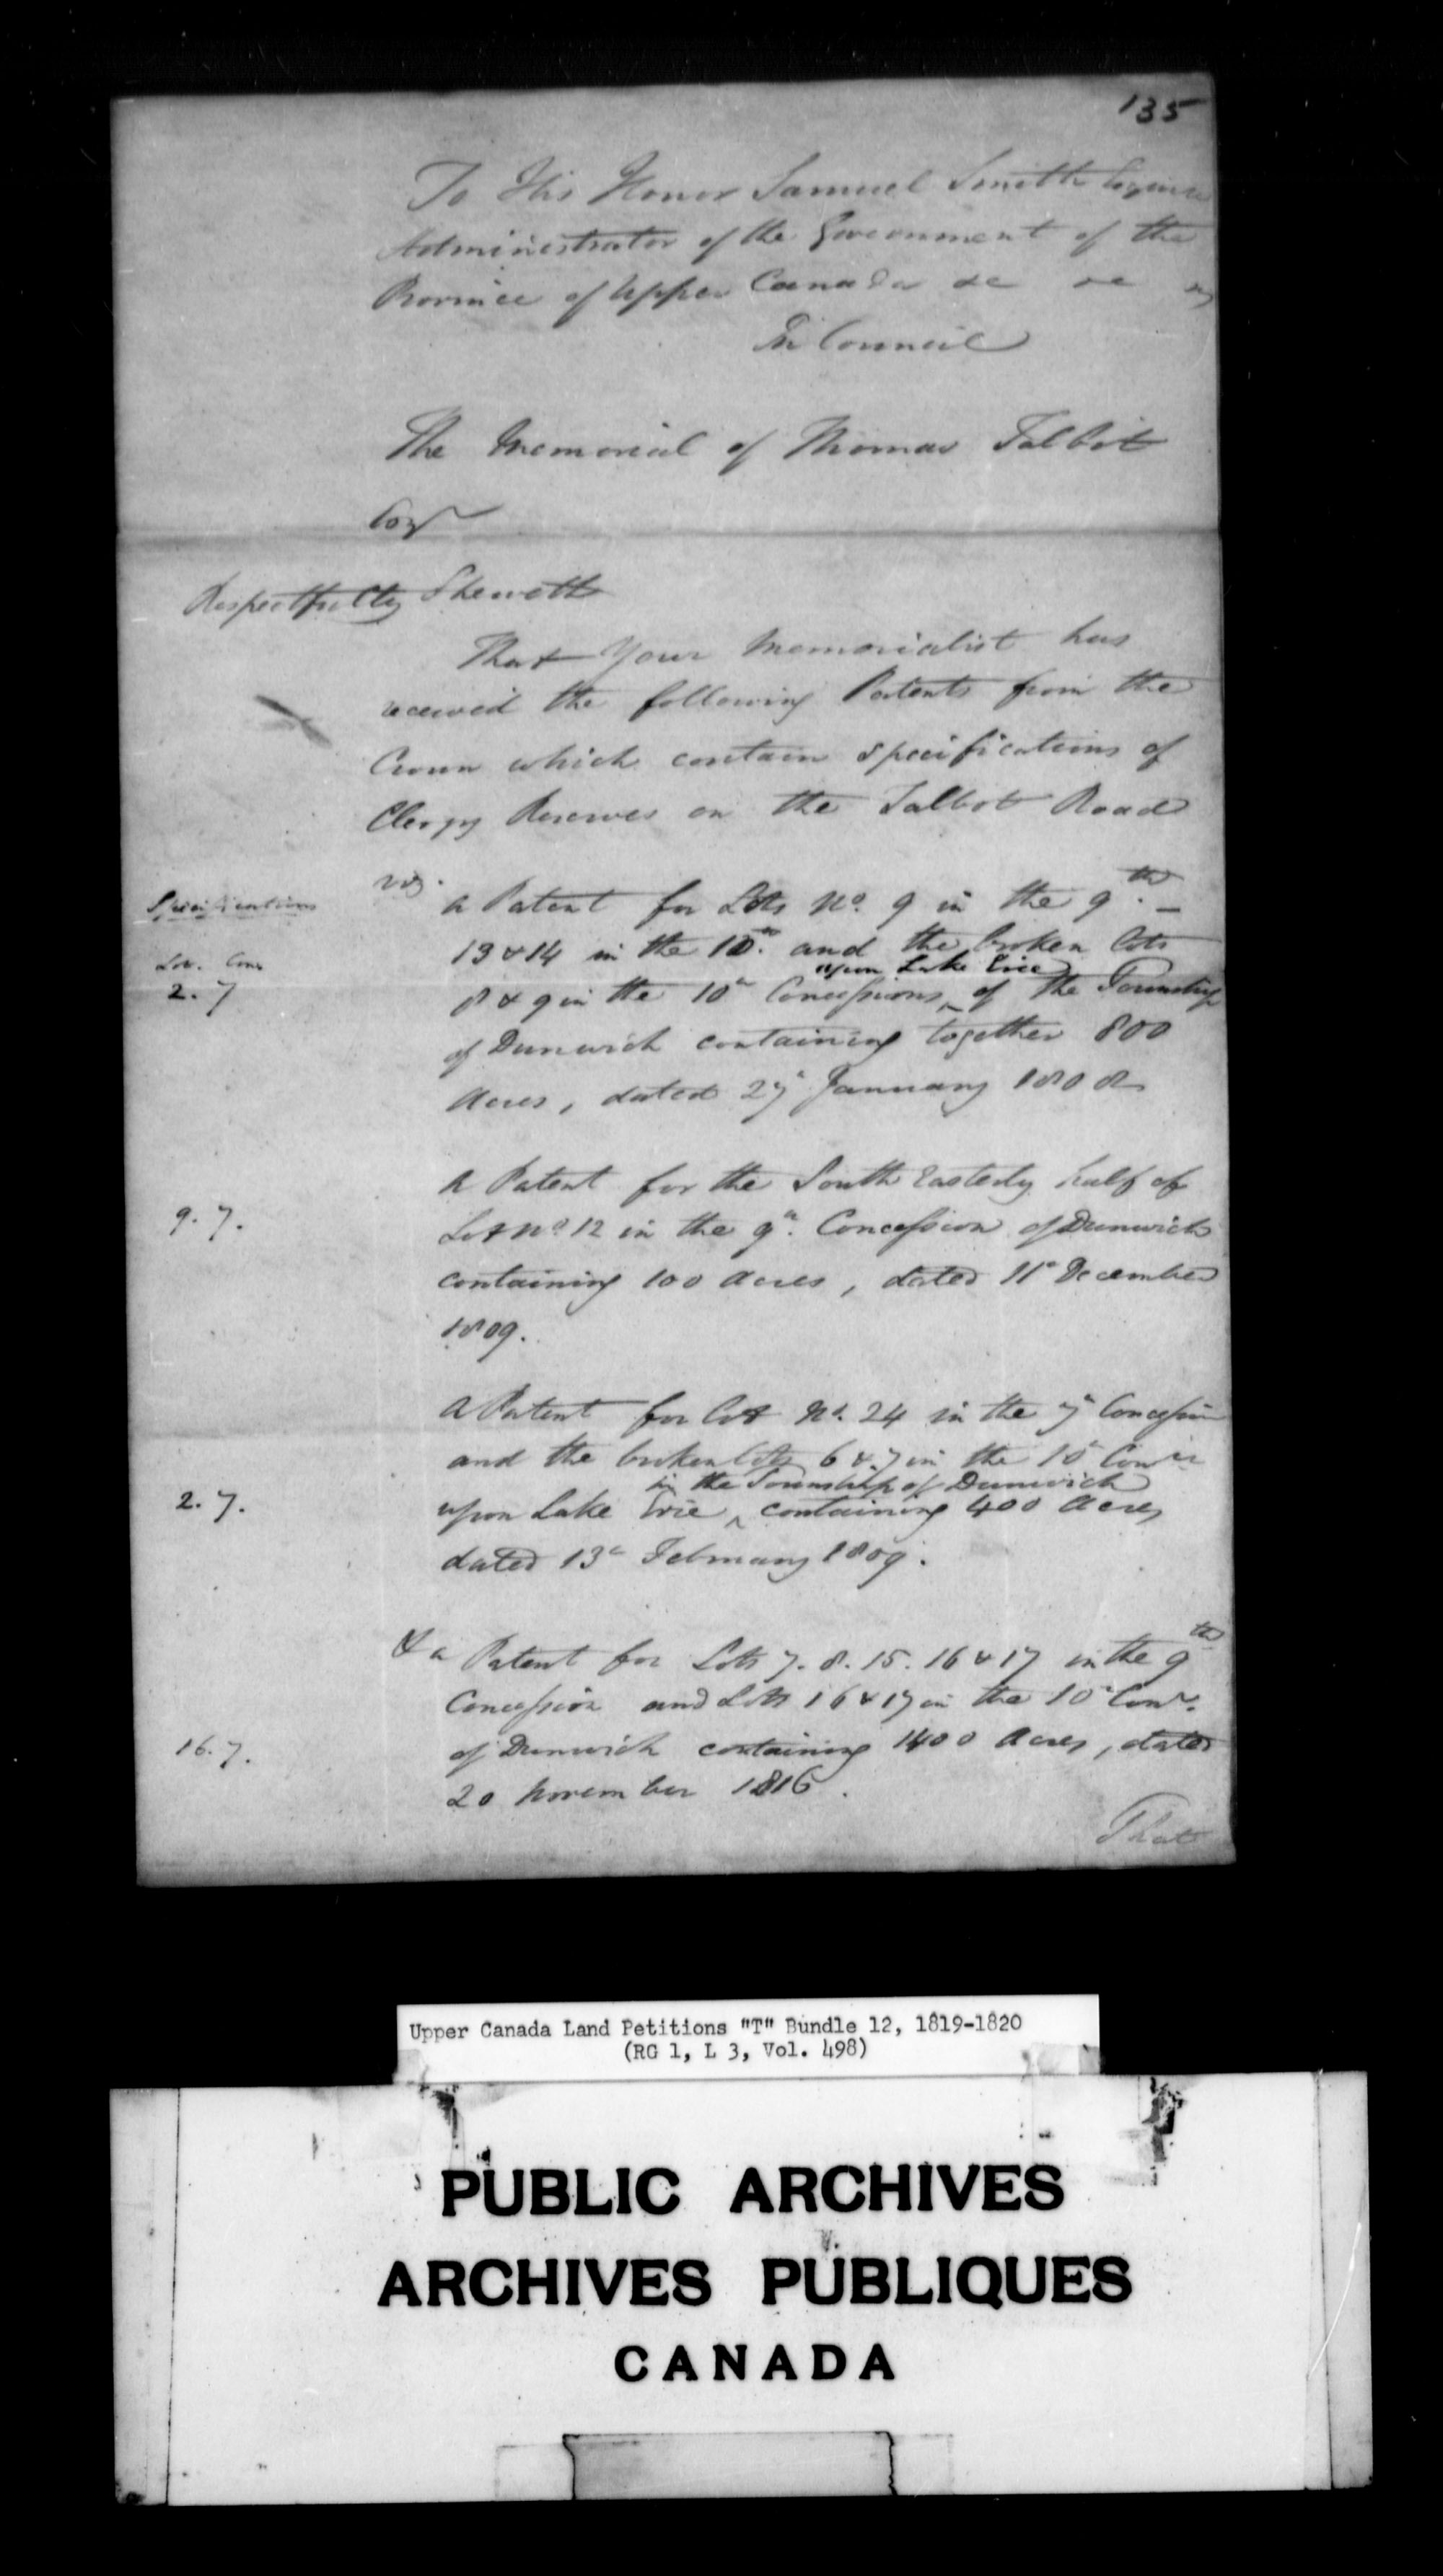 135
To His Honor Samuel Smith Esquire
Administrator of the Government of the
Province of Upper Canada &c &c &c
In Council
The Memorial of Thomas Talbot
Esqr
Respectfully Sheweth
That Your Memorialist has
received the following Patents from the
Crown which contain specifications of
Clergy Reserves on the Talbot Road
viz.
Specifications
a Patent for Lots No. 9 in the 9th. –
13 & 14 in the 10th. and the broken lots
Lot. Con.
upon Lake Erie
2. 7
8 & 9 in the 10th Concessions ^ of the Township
of Dunwich containing together 800
Acres, dated 27th January 1808
A Patent for the South Easterly half of
9. 7.
Lot No. 12 in the 9th. Concession of Dunwich
containing 100 Acres, dated 11th December
1809.
A Patent for Lot No. 24 in the 7th Concession
and the broken lots 6 & 7 in the 10th Conn
in the Township of Dunwich
2. 7.
upon Lake Erie ^ containing 400 Acres
dated 13th February 1809.
& a Patent for Lots 7. 8. 15. 16 & 17 in the 9th
Concession and Lots 16 & 17 in the 10th Conn.
16. 7.
of Dunwich containing 1400 Acres, dated
20 November 1816.
That
Upper Canada Land Petitions "T" Bundle 12, 1819-1820
(RG 1, L 3, Vol. 498)
PUBLIC ARCHIVES
ARCHIVES PUBLIQUES
CANADA